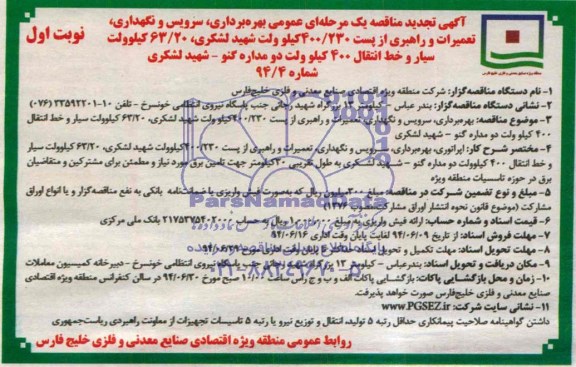 آگهی تجدید مناقصه یک مرحله‌ای عمومی بهره‌برداری، سرویس و نگهداری،
تعمیرات و راهبری از پست ۴۰۰/۲۳۰کیلو ولت شهید لشکری، ۶۳/۲۰ کیلوولت
سیار و خط انتقال ۴۰۰ کیلو ولت دو مداره گنو - شهید لشکری
شماره ۹۴/۴
نوبت اول
۱- نام دستگاه مناقصه‌گزار: شرکت منطقه ویژه اقتصادی صنایع معدنی و فلزی خلیج‌فارس
۲- نشانی دستگاه مناقصه‌گزار: بندر عباس - کیلومتر ۱۳ بزرگراه شهید رجائی جنب پاسگاه نیروی انتظامی خونسرخ - تلفن ۱۰-۳۳۵۹۲۲۰۱ (۰۷۶)
۳- موضوع مناقصه: بهره‌برداری، سرویس و نگهداری، تعمیرات و راهبری از پست ۴۰۰/۲۳۰کیلو ولت شهید لشکری، ۶۳/۲۰ کیلوولت سیار و خط انتقال
۴۰۰ کیلو ولت دو مداره گنو - شهید لشکری
۴- مختصر شرح کار: اپراتوری، بهره‌برداری، سرویس و نگهداری، تعمیرات و راهبری از پست ۴۰۰/۲۳۰ کیلوولت شهید لشکری، ۶۳/۲۰ کیلوولت سیار
و خط انتقال ۴۰۰ کیلوولت دو مداره گنو - شهید لشکری به طول تقریبی ۲۰کیلومتر جهت تامین برق مورد نیاز و مطمئن برای مشترکین و متقاضیان
برق در حوزه تاسیسات منطقه ویژه
۵- مبلغ و نوع تضمین شرکت در مناقصه: مبلغ ۳۰۰میلیون ریال که بصورت فیش واریزی یا ضمانتنامه بانکی به نفع مناقصه‌گزار و یا انواع اوراق
مشارکت (موضوع قانون نحوه انتشار اوراق مشارکت مصوب ۱۳۷۶)
۶- قیمت اسناد و شماره حساب: ارائه فیش واریزی به مبلغ ریال به حساب ۲۱۷۵۳۷۵۴۰۲۰۰۰ بانک ملی مرکزی
۷- مهلت فروش اسناد: از تاریخ ۹۴/۰۶/۰۹ لغایت پایان وقت اداری ۹۴/۰۶/۱۶
۸- مهلت تحویل اسناد: مهلت تکمیل و تحویل پایان وقت اداری
۹- مکان دریافت و تحویل اسناد: بندرعباس - کیلومتر ۱۳ بزرگراه شهید رجائی جنب پاسگاه نیروی انتظامی خونسرخ - دبیرخانه کمیسیون معاملات
۱۰- زمان و محل بازگشایی پاکات: بازگشایی پاکات الف و ب و ج راس ساعت ۱۰ صبح مورخ ۹۴/۰۶/۳۰ در سالن کنفرانس منطقه ویژه اقتصادی
صنایع معدنی و فلزی خلیج‌فارس صورت خواهد پذیرفت.
۱۱- نشانی سایت شرکت: www.PGSEZ.ir
داشتن گواهینامه صلاحیت پیمانکاری حداقل رتبه ۵ تولید، انتقال و توزیع نیرو یا رتبه ۵ تاسیسات تجهیزات از معاونت راهبردی ریاست‌جمهوری
روابط عمومی منطقه ویژه اقتصادی صنایع معدنی و فلزی خلیج فارس
ParsNamadData